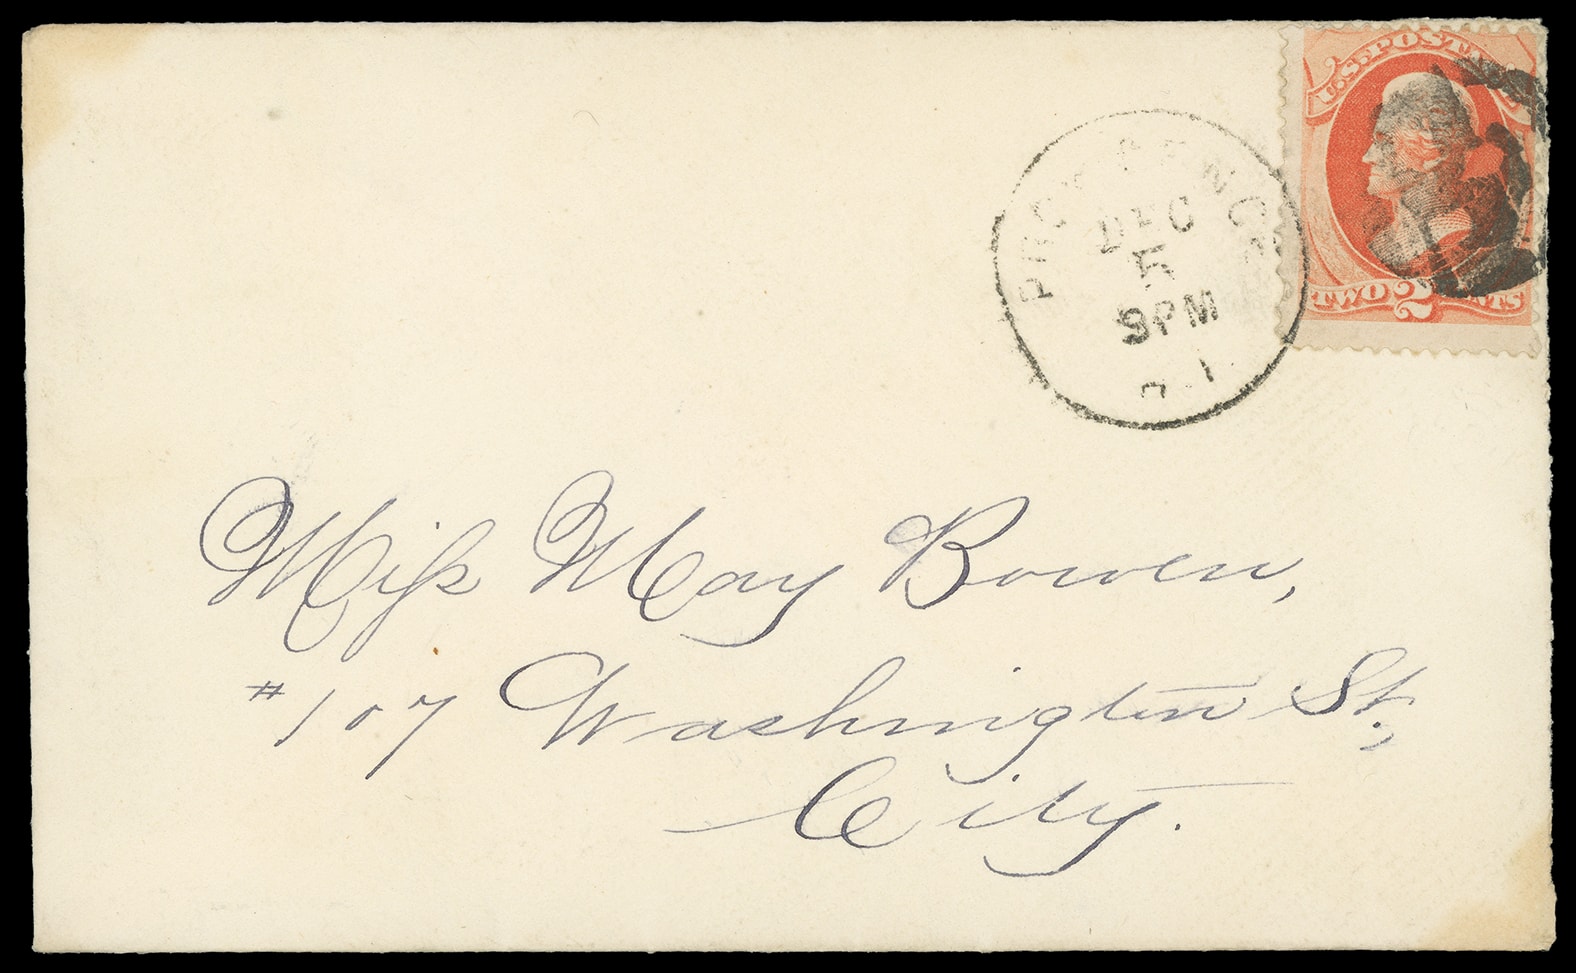 U.S. POSTAGE
TWO 2 CENTS
PROVIDENCE
DEC
5
9 PM
R.I.
Miss May Bowen,
#107 Washington St.,
City.